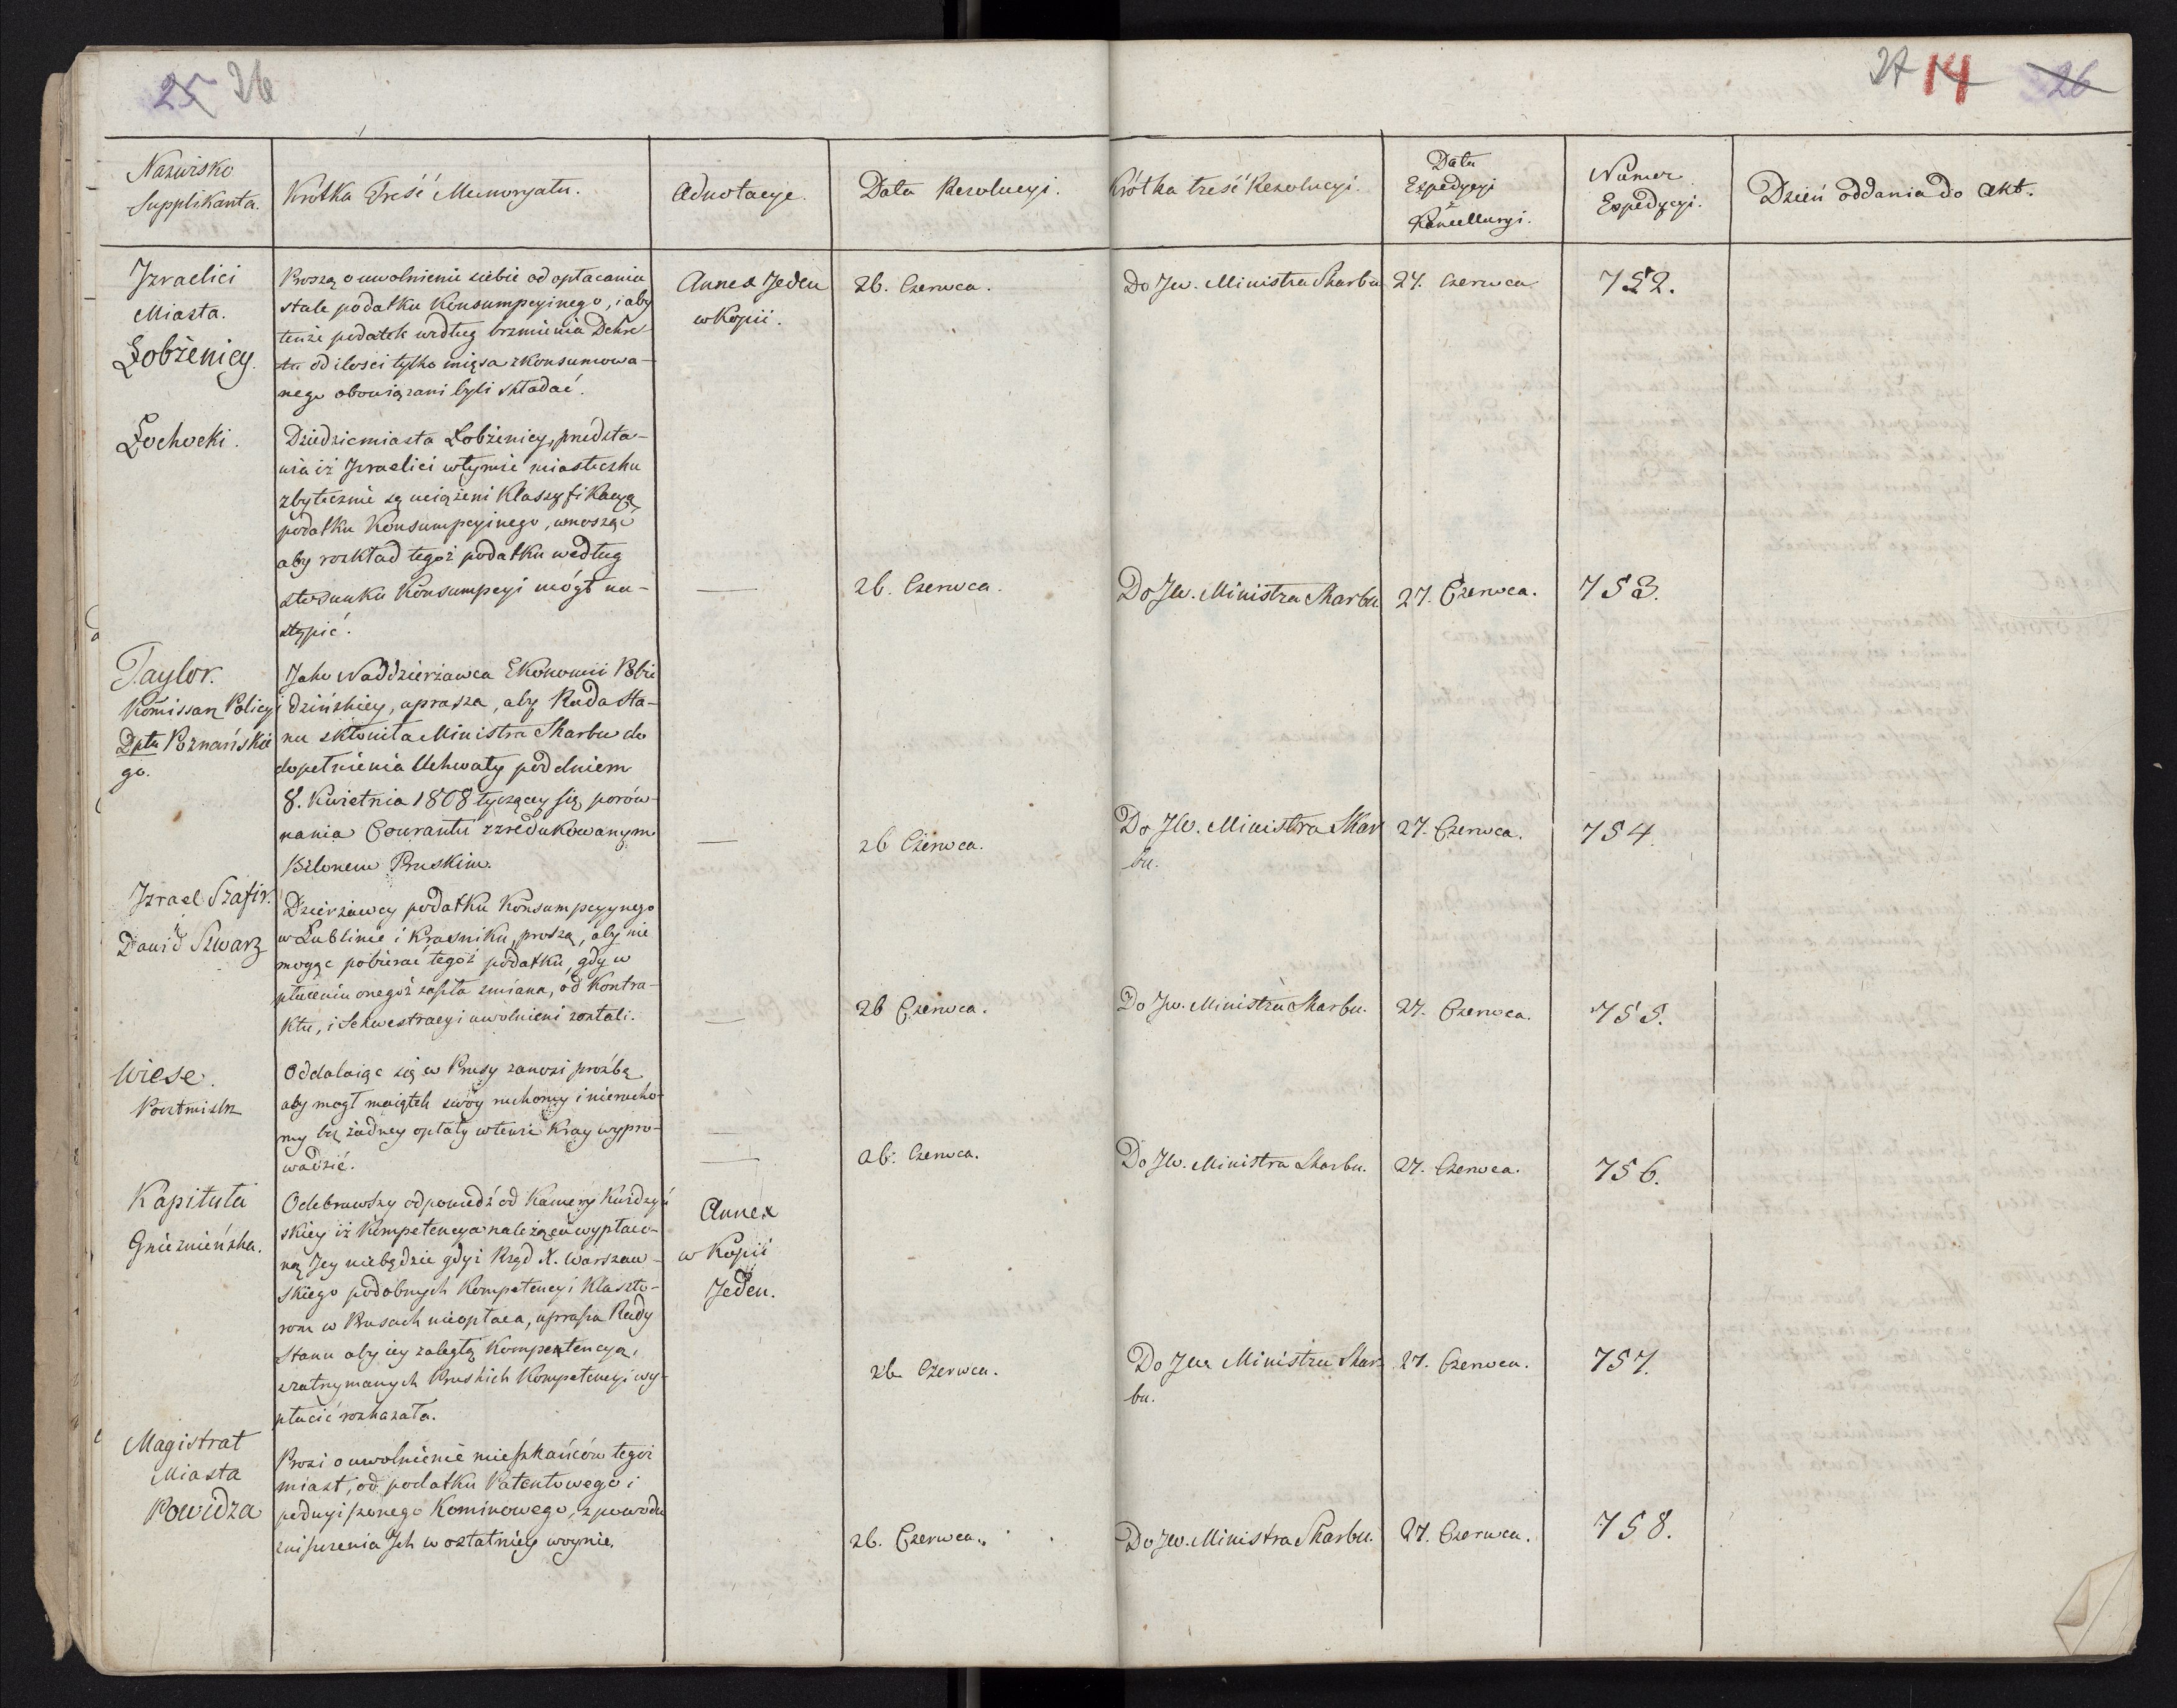 25 26
27 14 26
Nazwisko
Supplikanta.
Krótka Treść Memoryału.
Adnotacye.
Data Rezolucyi.
Krótka treść Rezolucyi.
Data
Expedycyi
z
Kancellaryi.
Numer
Expedycyi.
Dzień oddania do Akt.
Izraelici
Miasta.
Łobżenicy.
Proszą o uwolnienie siebie od opłacania
stale podatku Konsumpcyinego, i aby
tenże podatek według brzmienia Dekre-
tu od ilości tylko mięsa zkonsumowa-
nego obowiązani byli składać.
Annex Jeden
w Kopii.
26. Czerwca.
Do Jw. Ministra Skarbu
27. Czerwca
752.
Łochocki.
Dziedzic miasta Łobżenicy, przedsta-
wia iż Izraelici wtymże miasteczku
zbytecznie są uciążeni Klassyfikacyą
podatku Konsumpcyinego, wnosząc
aby rozkład tegoż podatku według
stosunku Konsumpcyi mógł na-
stąpić.
—
26. Czerwca.
Do Jw. Ministra Skarbu
27. Czerwca.
753.
Taylor.
Komissarz Policyi
Dptu Poznańskie
go.
Jako Naddzierżawca Ekonomii Pobie
dzińskiey, uprasza, aby Rada Sta-
nu skłoniła Ministra Skarbu do
dopełnienia Uchwały pod dniem
8. Kwietnia 1808 tyczącey się porów-
nania Courantu zzredukowanym
Bilonem Pruskim.
—
26 Czerwca.
Do JW. Ministra Skar
bu.
27. Czerwca.
754.
Izrael Szafir.
i
Dawid Szwarz
Dzierżawcy podatku Konsumpcyynego
w Lublinie i Kraśniku, proszą, aby nie
mogąc pobierać tegoż podatku, gdy w
płaceniu onegoż zaszła zmiana, od Kontra-
ktu, i Sekwestracyi uwolnieni zostali.
—
26 Czerwca.
Do Jw. Ministra Skarbu.
27. Czerwca.
755.
Wiese.
Pocztmistrz
Oddalaiąc się w Prusy zanosi prośbę
aby mogł maiątek swóy ruchomy i nierucho-
my bez żadney opłaty wtenże Kray wypro-
wadzić.
—
—
26. Czerwca.
Do JW. Ministra Skarbu.
27. Czerwca.
756.
Kapituła
Gnieznieńska.
Odebrawszy odpowiedź od Kamery Kwidzyń
skiey iż Kompetencya należąca wypłaco-
ną Jey niebędzie gdyż Rząd X. Warszaw-
skiego podobnych Kompetencyi Klaszto-
rom w Prusach nieopłaca, uprasza Rady
Stanu aby iey zaległą Kompetencya,
zzatrzymanych Pruskich Kompetencyi wy-
płacić rozkazała.
Annex
w Kopii
Jeden.
26 Czerwca.
Do Jwa Ministra Skar
bu.
27. Czerwca.
757.
Magistrat
Miasta
Powidza
Prosi o uwolnienie mieszkańców tegoż
miast, od podatku Patentowego i
podwyiszonego Kominowego, z powodu
zniszczenia Ich w ostatniey woynie.
26. Czerwca.
Do Jw. Ministra Skarbu.
27. Czerwca.
758.